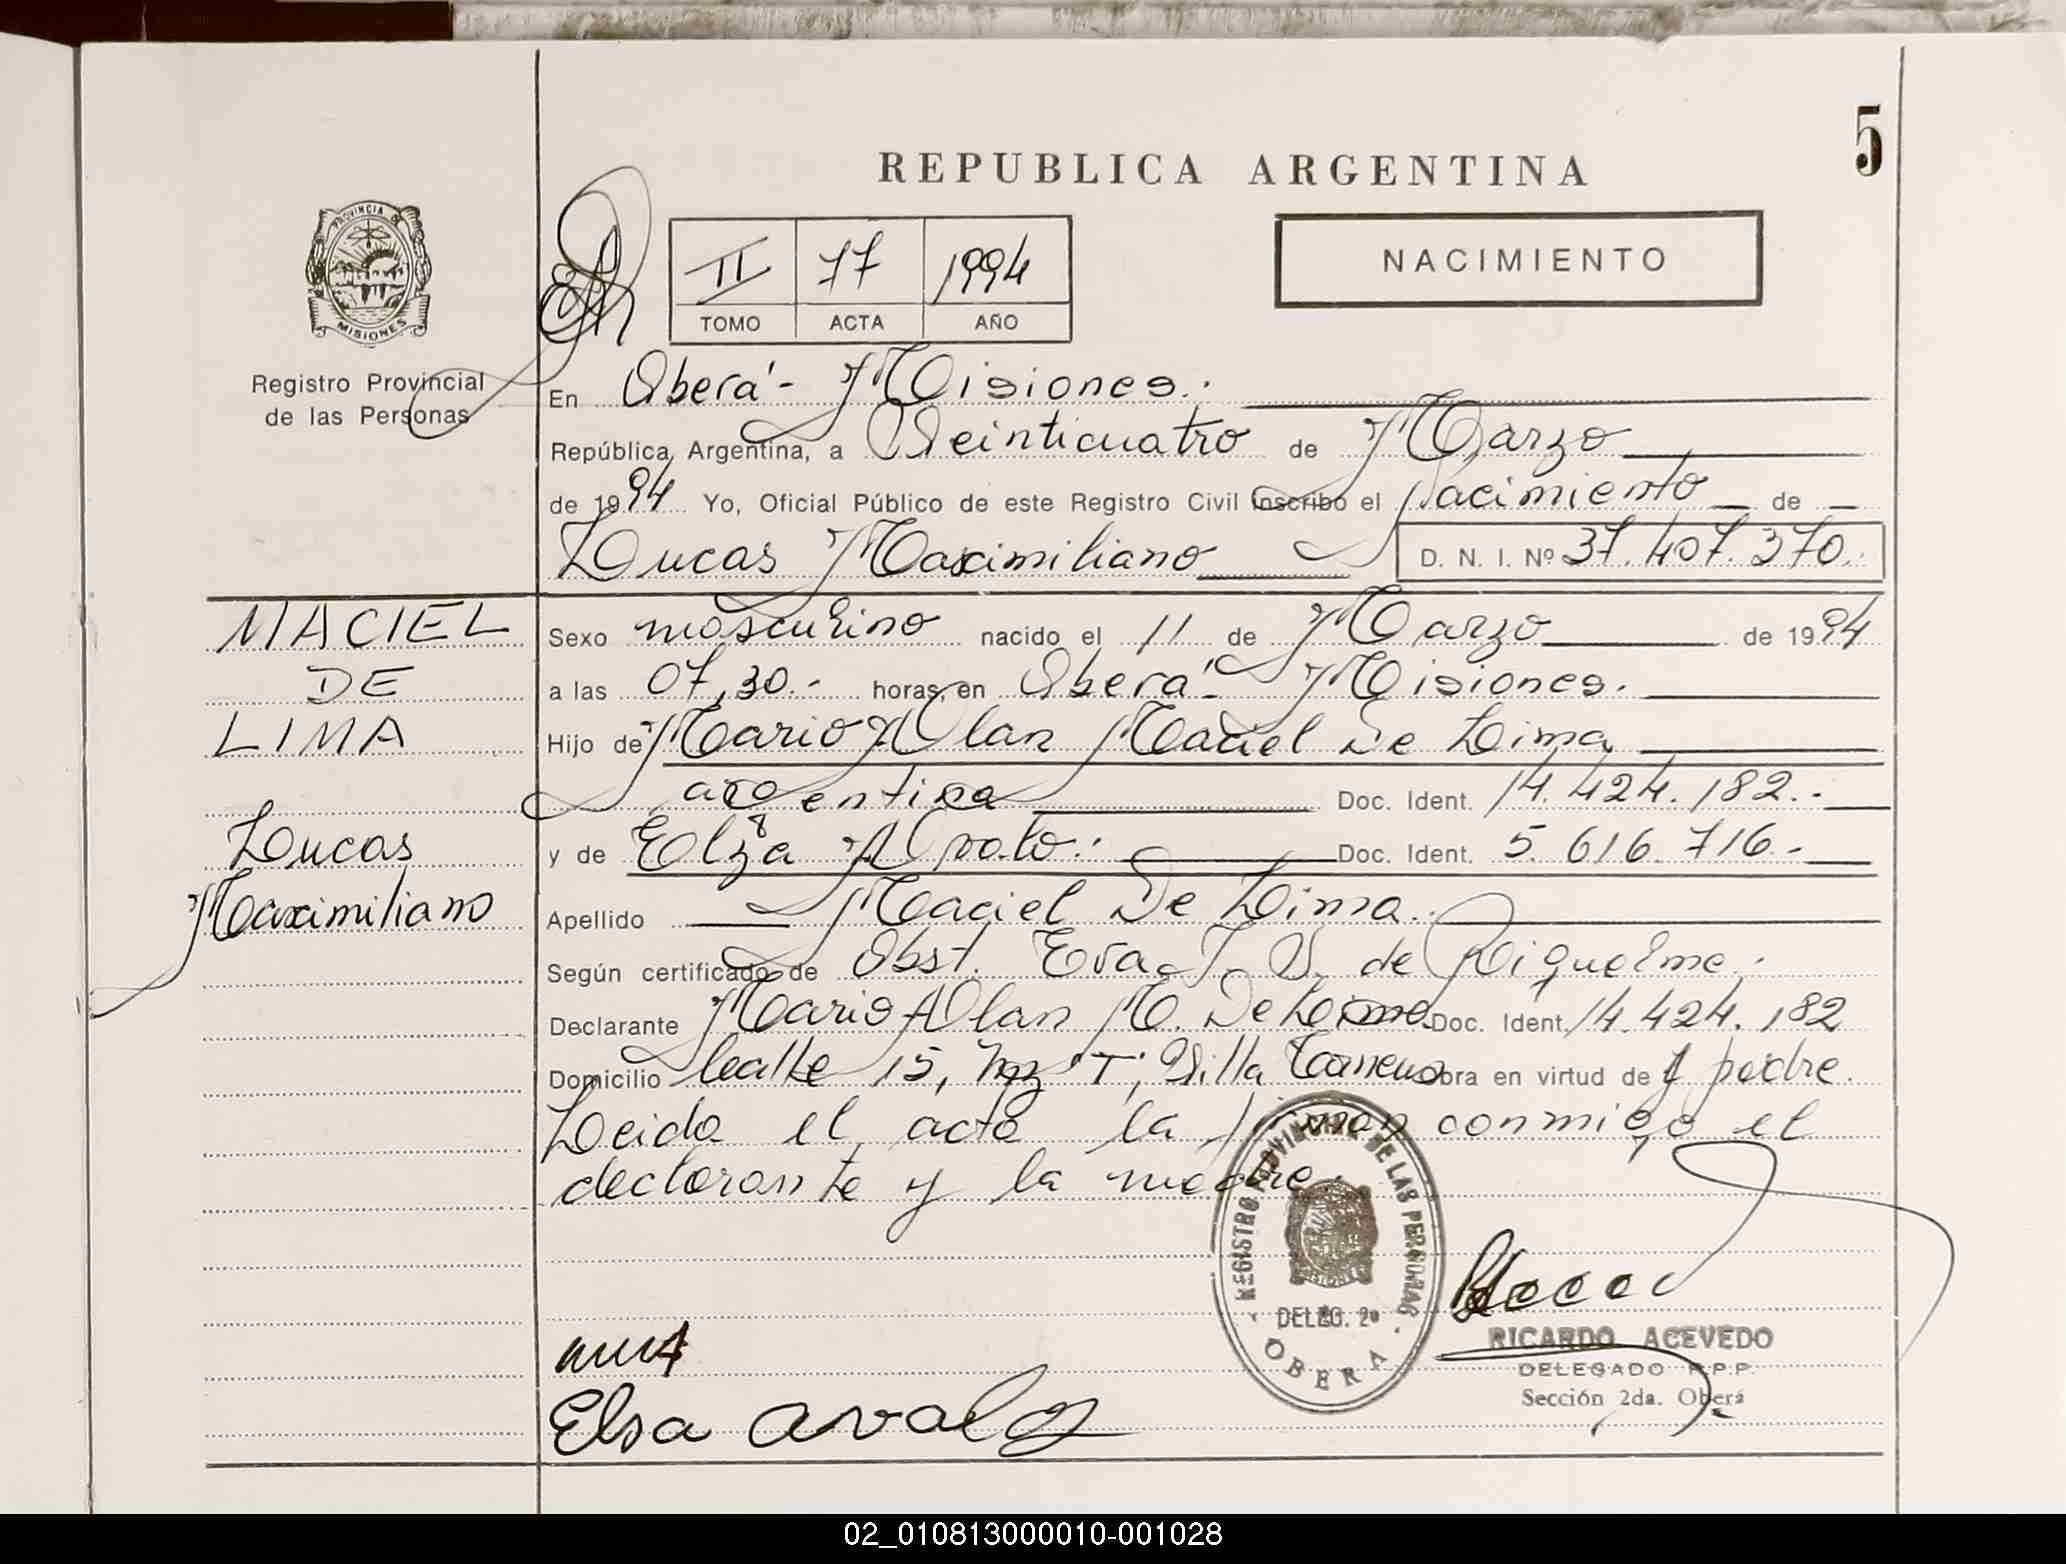 5
REPUBLICA ARGENTINA
PROVINCIA DE
MISIONES
Registro Provincial
de las Personas
II 77 1994
TOMO ACTA AÑO
NACIMIENTO
En Oberá - Misiones.
República Argentina, a Veinticuatro de Marzo
de 1994 Yo, Oficial Público de este Registro Civil inscribo el Nacimiento de
Lucas Maximiliano D. N. I. Nº 37.407.370.
MACIEL
DE
LIMA
Lucas
Maximiliano
Sexo masculino nacido el 11 de Marzo de 1994
a las 07,30.- horas, en Oberá - Misiones.
Hijo de Mario Alan Maciel De Lima
argentina Doc. Ident. 14.424.182.-
y de Elza Doc. Ident. 5.616.716.-
Apellido Maciel De Lima.
Según certificado de Obst. Eva J. V. de Riquelme.
Declarante Mario Alan M. De Lima Doc. Ident. 14.424.182
Domicilio Calle 15, Mz "T", Villa obra en virtud de padre.
Leida el acta la firman conmigo el
declarante y la madre.
REGISTRO PROVINCIAL DE LAS PERSONAS
DELEG. 2ª
OBERA
RICARDO ACEVEDO
DELEGADO R.P.P.
Sección 2da. Oberá
Elsa
02_010813000010-001028